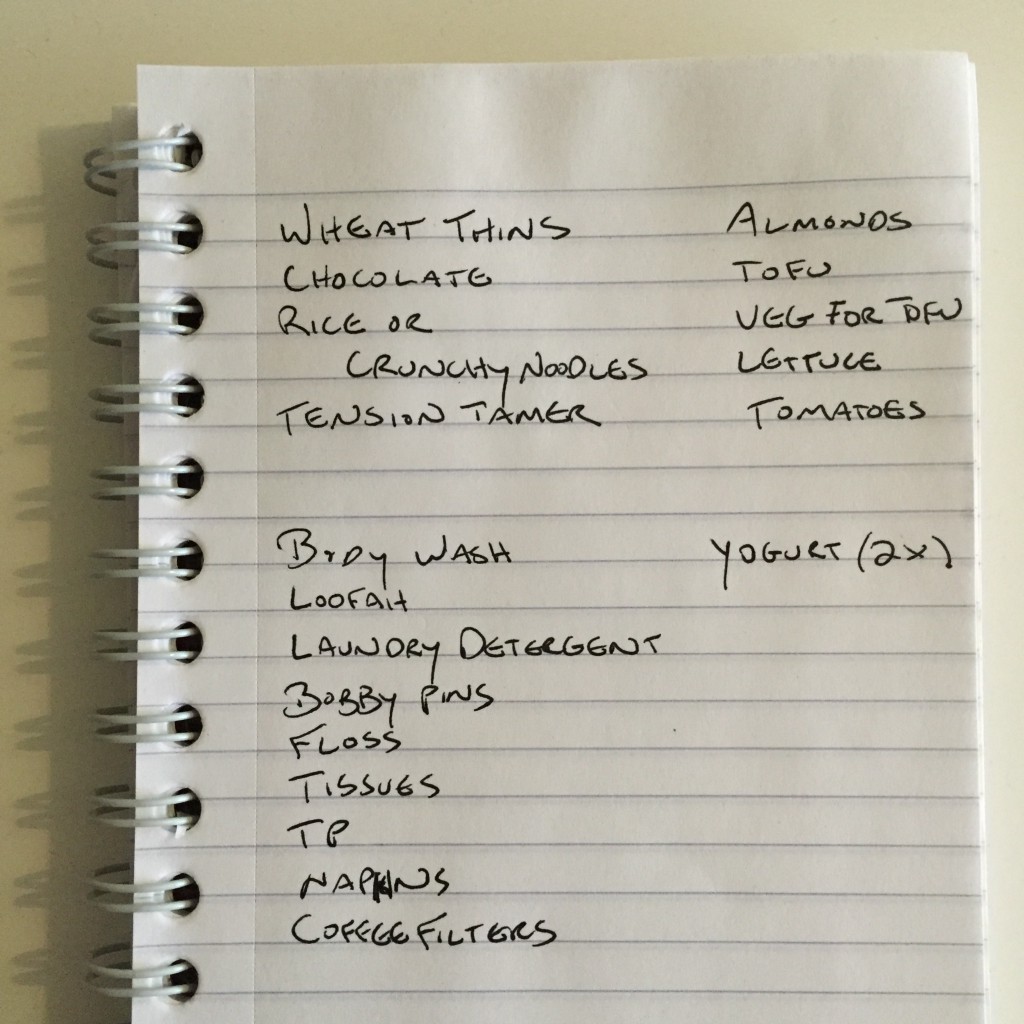 WHEAT THINS
CHOCOLATE
RICE OR
CRUNCHY NOODLES
TENSION TAMER
ALMONDS
TOFU
VEG FOR TOFU
LETTUCE
TOMATOES
BODY WASH
LOOFAH
LAUNDRY DETERGENT
BOBBY PINS
FLOSS
TISSUES
TP
NAPKINS
COFFEE FILTERS
YOGURT (2x)